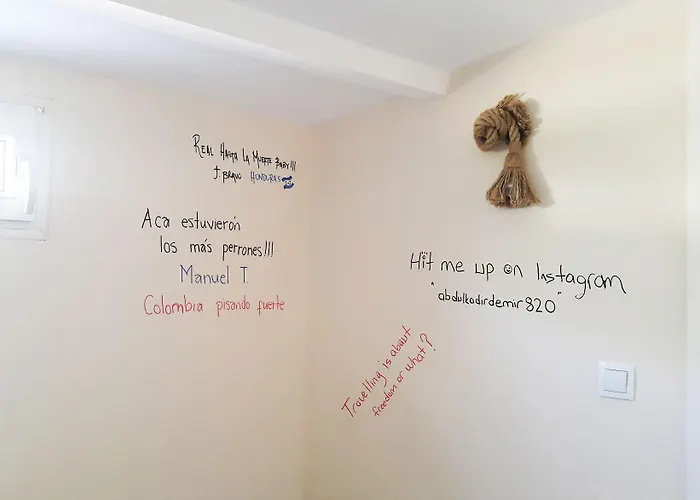 Real Hasta La Muerte Baby!!!
J. Bravo Honduras
Aca estuvierón
los más perrones!!!
Manuel T.
Colombia pisando fuerte
Hit me up on Instagram
"abdulkadirdemir820"
Travelling is about
freedom or what?